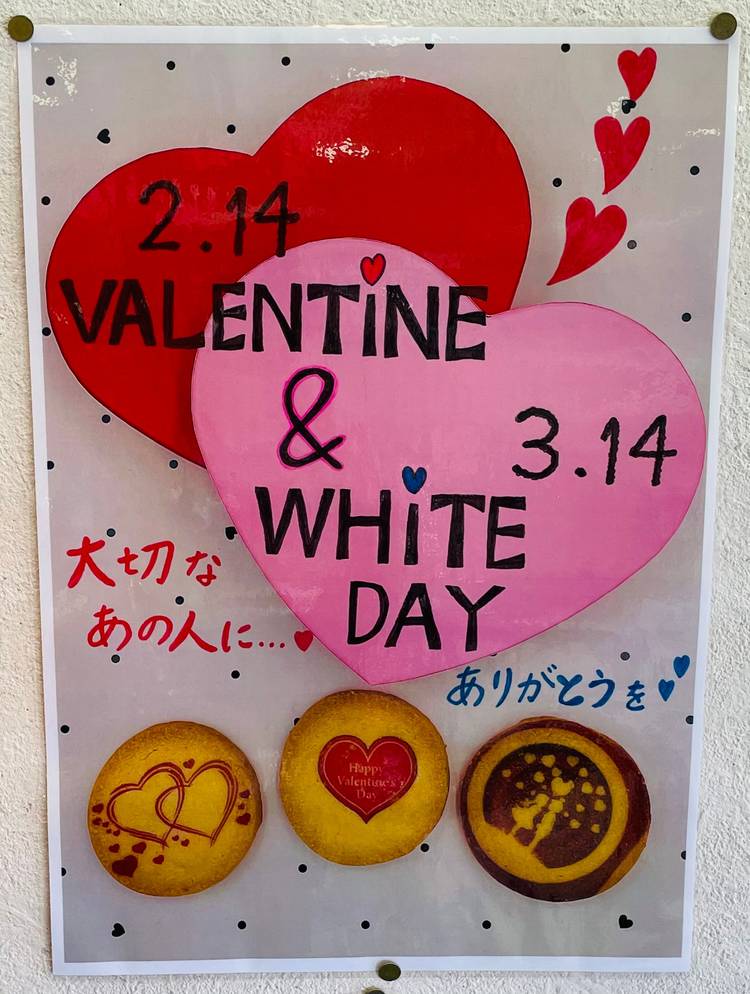 2.14
VALENTINE
&
3.14
WHiTE
DAY
大切な
あの人に...
ありがとうを
Happy
Valentine's
Day